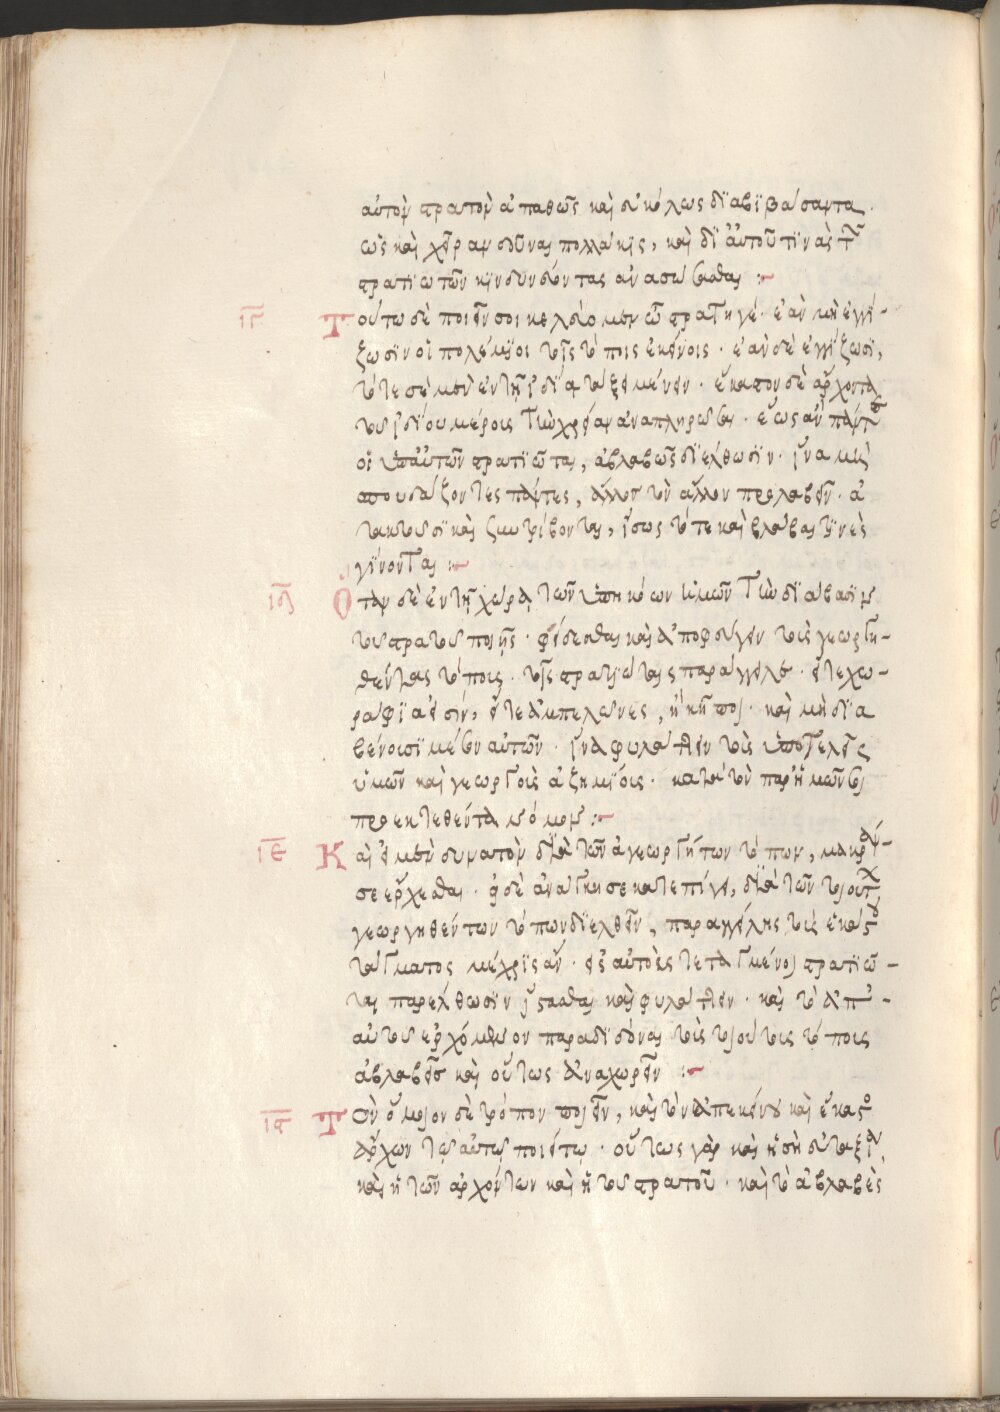 αὐτὸν στρατὸν ἀπαθῶς καὶ εὐκόλως διαβιβάσαντα.
ὡς καὶ χεῖραν δοῦναι πολλάκις, καὶ δι' αὐτοῦ τινὰς τῶν
στρατιωτῶν κινδυνεύοντας ἀνασώσασθαι :~
ιγ Τοῦτο δὲ ποιεῖν σοι κελεύομεν ὦ στρατηγέ· ἐὰν μὴ ἐγγί-
ζωσιν οἱ πολέμιοι τοῖς τόποις ἐκείνοις· ἐὰν δὲ ἐγγίζωσι,
τότε σὲ μὲν ἐν τῇ ἰδίᾳ τάξει μένειν· ἕκαστον δὲ ἄρχοντα
τοῦ ἰδίου μέρους τὴν χρείαν ἀναπληρῶσαι· ἕως ἂν πάντες
οἱ ὑπ' αὐτῶν στρατιῶται, ἀβλαβῶς διέλθωσιν· ἵνα μὴ
σπουδάζοντες πάντες, ἄλλος τὸν ἄλλον προλαβεῖν· ἀ
τακτῶσι καὶ συντρίβονται, ἴσως τότε καὶ βλάβαι τινὲς
γίνονται :~
ιδ Ὅταν δὲ ἐν τῇ χώρᾳ τῶν ὑπηκόων ἡμῶν τὴν διάβασιν
τοῦ στρατοῦ ποιῇς· φείδεσθαι καὶ ἀποφεύγειν τοὺς γεωργη-
θέντας τόπους· τοῖς στρατιώταις παράγγελε· εἴτε χω-
ράφιά εἰσιν, εἴτε ἀμπελῶνες, ἢ κῆποι· καὶ μὴ δια
βαίνωσι μέσον αὐτῶν· ἵνα φυλάττειν τοὺς ὑποτελεῖς
ὑμῶν καὶ γεωργοὺς ἀζημίους· κατὰ τὸν παρ' ἡμῶν σοι
προεκτεθέντα νόμον :~
ιε Καὶ εἰ μὲν δυνατὸν διὰ τῶν ἀγεωργήτων τόπων, μακράν
σε ἔρχεσθαι· εἰ δὲ ἀνάγκη σε κατεπείγει, διὰ τῶν τοιούτων
γεωργηθέντων τόπων διελθεῖν, παραγγέλλῃς τοὺς ἑκάστου
τάγματος μέχρις ἂν· οἱ αὐτοῖς τεταγμένοι στρατιῶ-
ται παρέλθωσιν ἵστασθαι καὶ φυλάττειν· καὶ τὸ ἀπ' -
αὐτοῦ ἐρχόμενον παραδιδόναι τοὺς τοιούτους τόπους
ἀβλαβεῖς καὶ οὕτως ἀναχωρεῖν :~
ις Τὸν ὅμοιον δὲ τρόπον ποιεῖν, καὶ τὸν ἀπεκείνου καὶ ἕκαστος
ἄρχων τὸ αὐτὸ ποιείτω· οὕτως γὰρ καὶ ἡ σὴ εὐταξία,
καὶ ἡ τῶν ἀρχόντων καὶ ἡ τοῦ στρατοῦ· καὶ τὸ ἀβλαβὲς